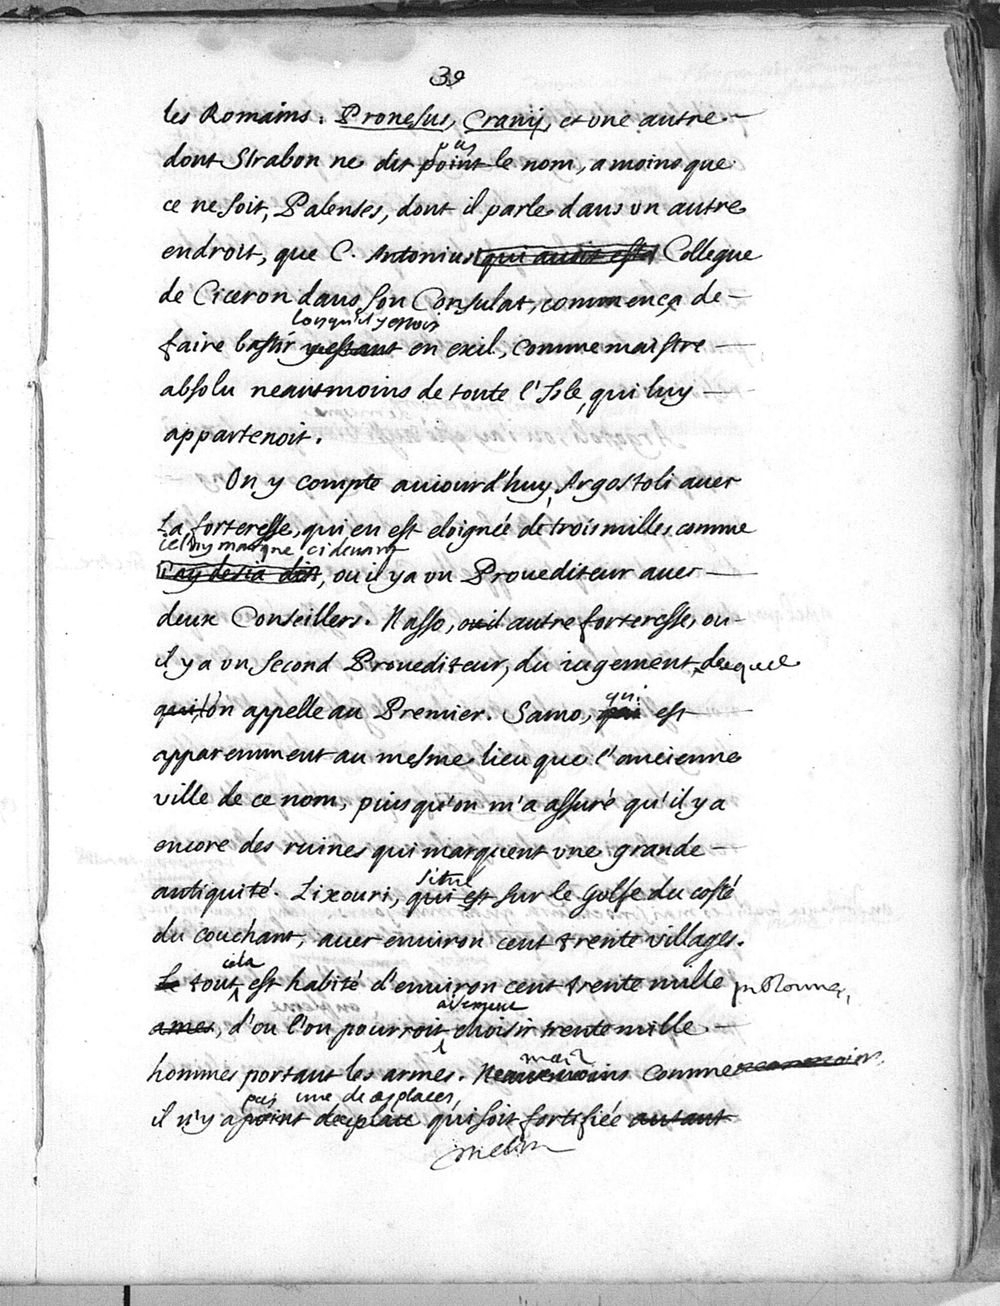 39
les Romains. Pronesus, Cranij, et vne autre
pas
dont Strabon ne dit point le nom, a moins que
ce ne soit, Palenses, dont il parle dans vn autre
endroit, que C. Antonius qui avoit esté Collegue
de Ciceron dans son Consulat, commença de
lorsqu'il y estoit
faire bastir y estant en exil, comme maistre
absolu neantmoins de toute l'Isle, qui luy
appartenoit.
On y compte auiourd'huy Argostoli auec
La forteresse, qui en est eloignée de trois milles comme
ie l'ay marqué ci devant
i'ay desia dit, ou il y a vn Prouediteur auec
deux Conseillers. Nasso, autre forteresse, ou
il y a vn second Prouediteur, du iugement duquel
qui l'on appelle au Premier. Samo, qui est
qui
apparemment au mesme lieu que l'ancienne
ville de ce nom, puis qu'on m'a assuré qu'il y a
encore des ruines qui marquent vne grande
antiquité. Lixouri, qui est sur le Golfe du costé
situé
du couchant, auec environ cent trente villages.
cela
Le tout est habité d'environ cent trente mille personnes,
aisement
ames, d'ou l'on pourroit choisir trente mille
mais
hommes portant les armes. Neantmoins comme
pas une de ces places,
il n'y a point de place qui soit fortifiée autant